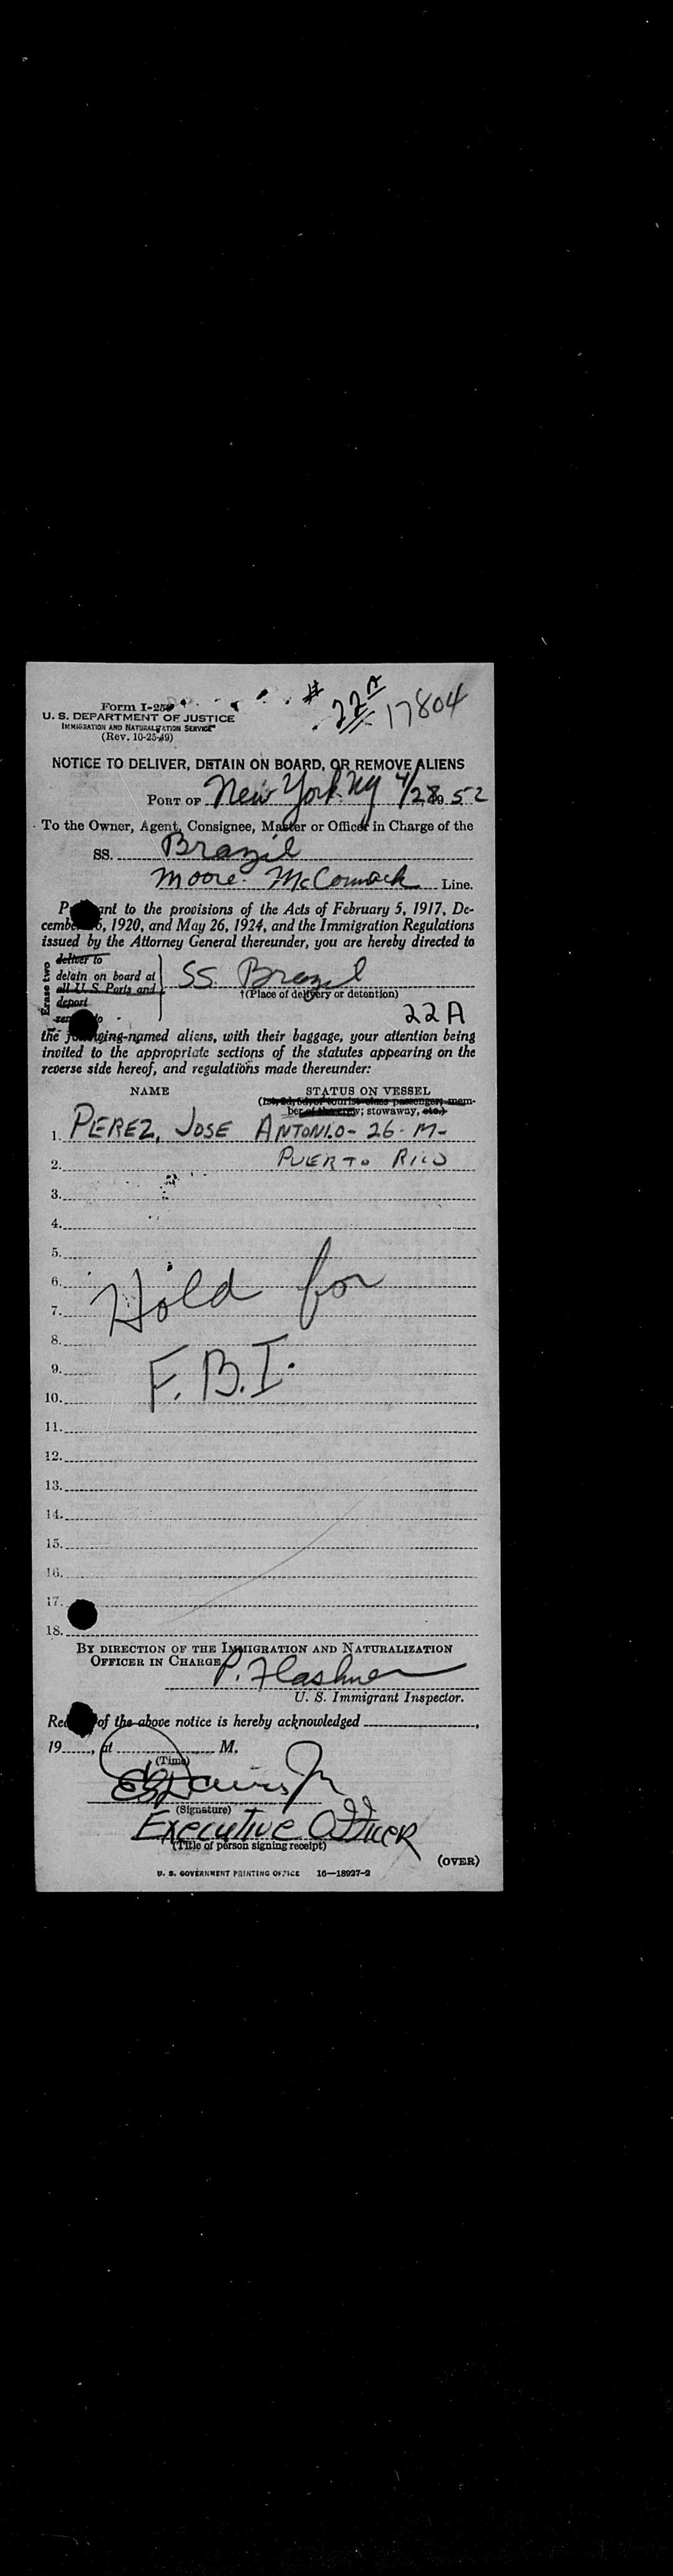 # 22A 17804
Form I-259
U. S. DEPARTMENT OF JUSTICE
IMMIGRATION AND NATURALIZATION SERVICE
(Rev. 10-25-49)
NOTICE TO DELIVER, DETAIN ON BOARD, OR REMOVE ALIENS
PORT OF New York. NY 4/28 52
To the Owner, Agent, Consignee, Master or Officer in Charge of the
SS. Brazil
Moore-McCormack Line.
to the provisions of the Acts of February 5, 1917, De-
1920, and May 26, 1924, and the Immigration Regulations
issued by the Attorney General thereunder, you are hereby directed to
Erase two
deliver to
detain on board at
all U. S. Ports and
deport
SS. Brazil
†(Place of delivery or detention)
22A
the aliens, with their baggage, your attention being
invited to the appropriate sections of the statutes appearing on the
reverse side hereof, and regulations made thereunder:
NAME STATUS ON VESSEL
(1st, 2d, 3d, or tourist-class passenger; mem-
ber of the crew; stowaway, etc.)
1. PEREZ, JOSE ANTONIO - 26 - M -
2. PUERTO RICO
3.
4.
5.
6. Hold for
7.
8.
9. F.B.I.
10.
11.
12.
13.
14.
15.
16.
17.
18.
BY DIRECTION OF THE IMMIGRATION AND NATURALIZATION
OFFICER IN CHARGE
P. Flashner
U. S. Immigrant Inspector.
of the above notice is hereby acknowledged
19 , at M.
(Time)
(Signature)
Executive Officer
(Title of person signing receipt)
(OVER)
U. S. GOVERNMENT PRINTING OFFICE 16—18927-2